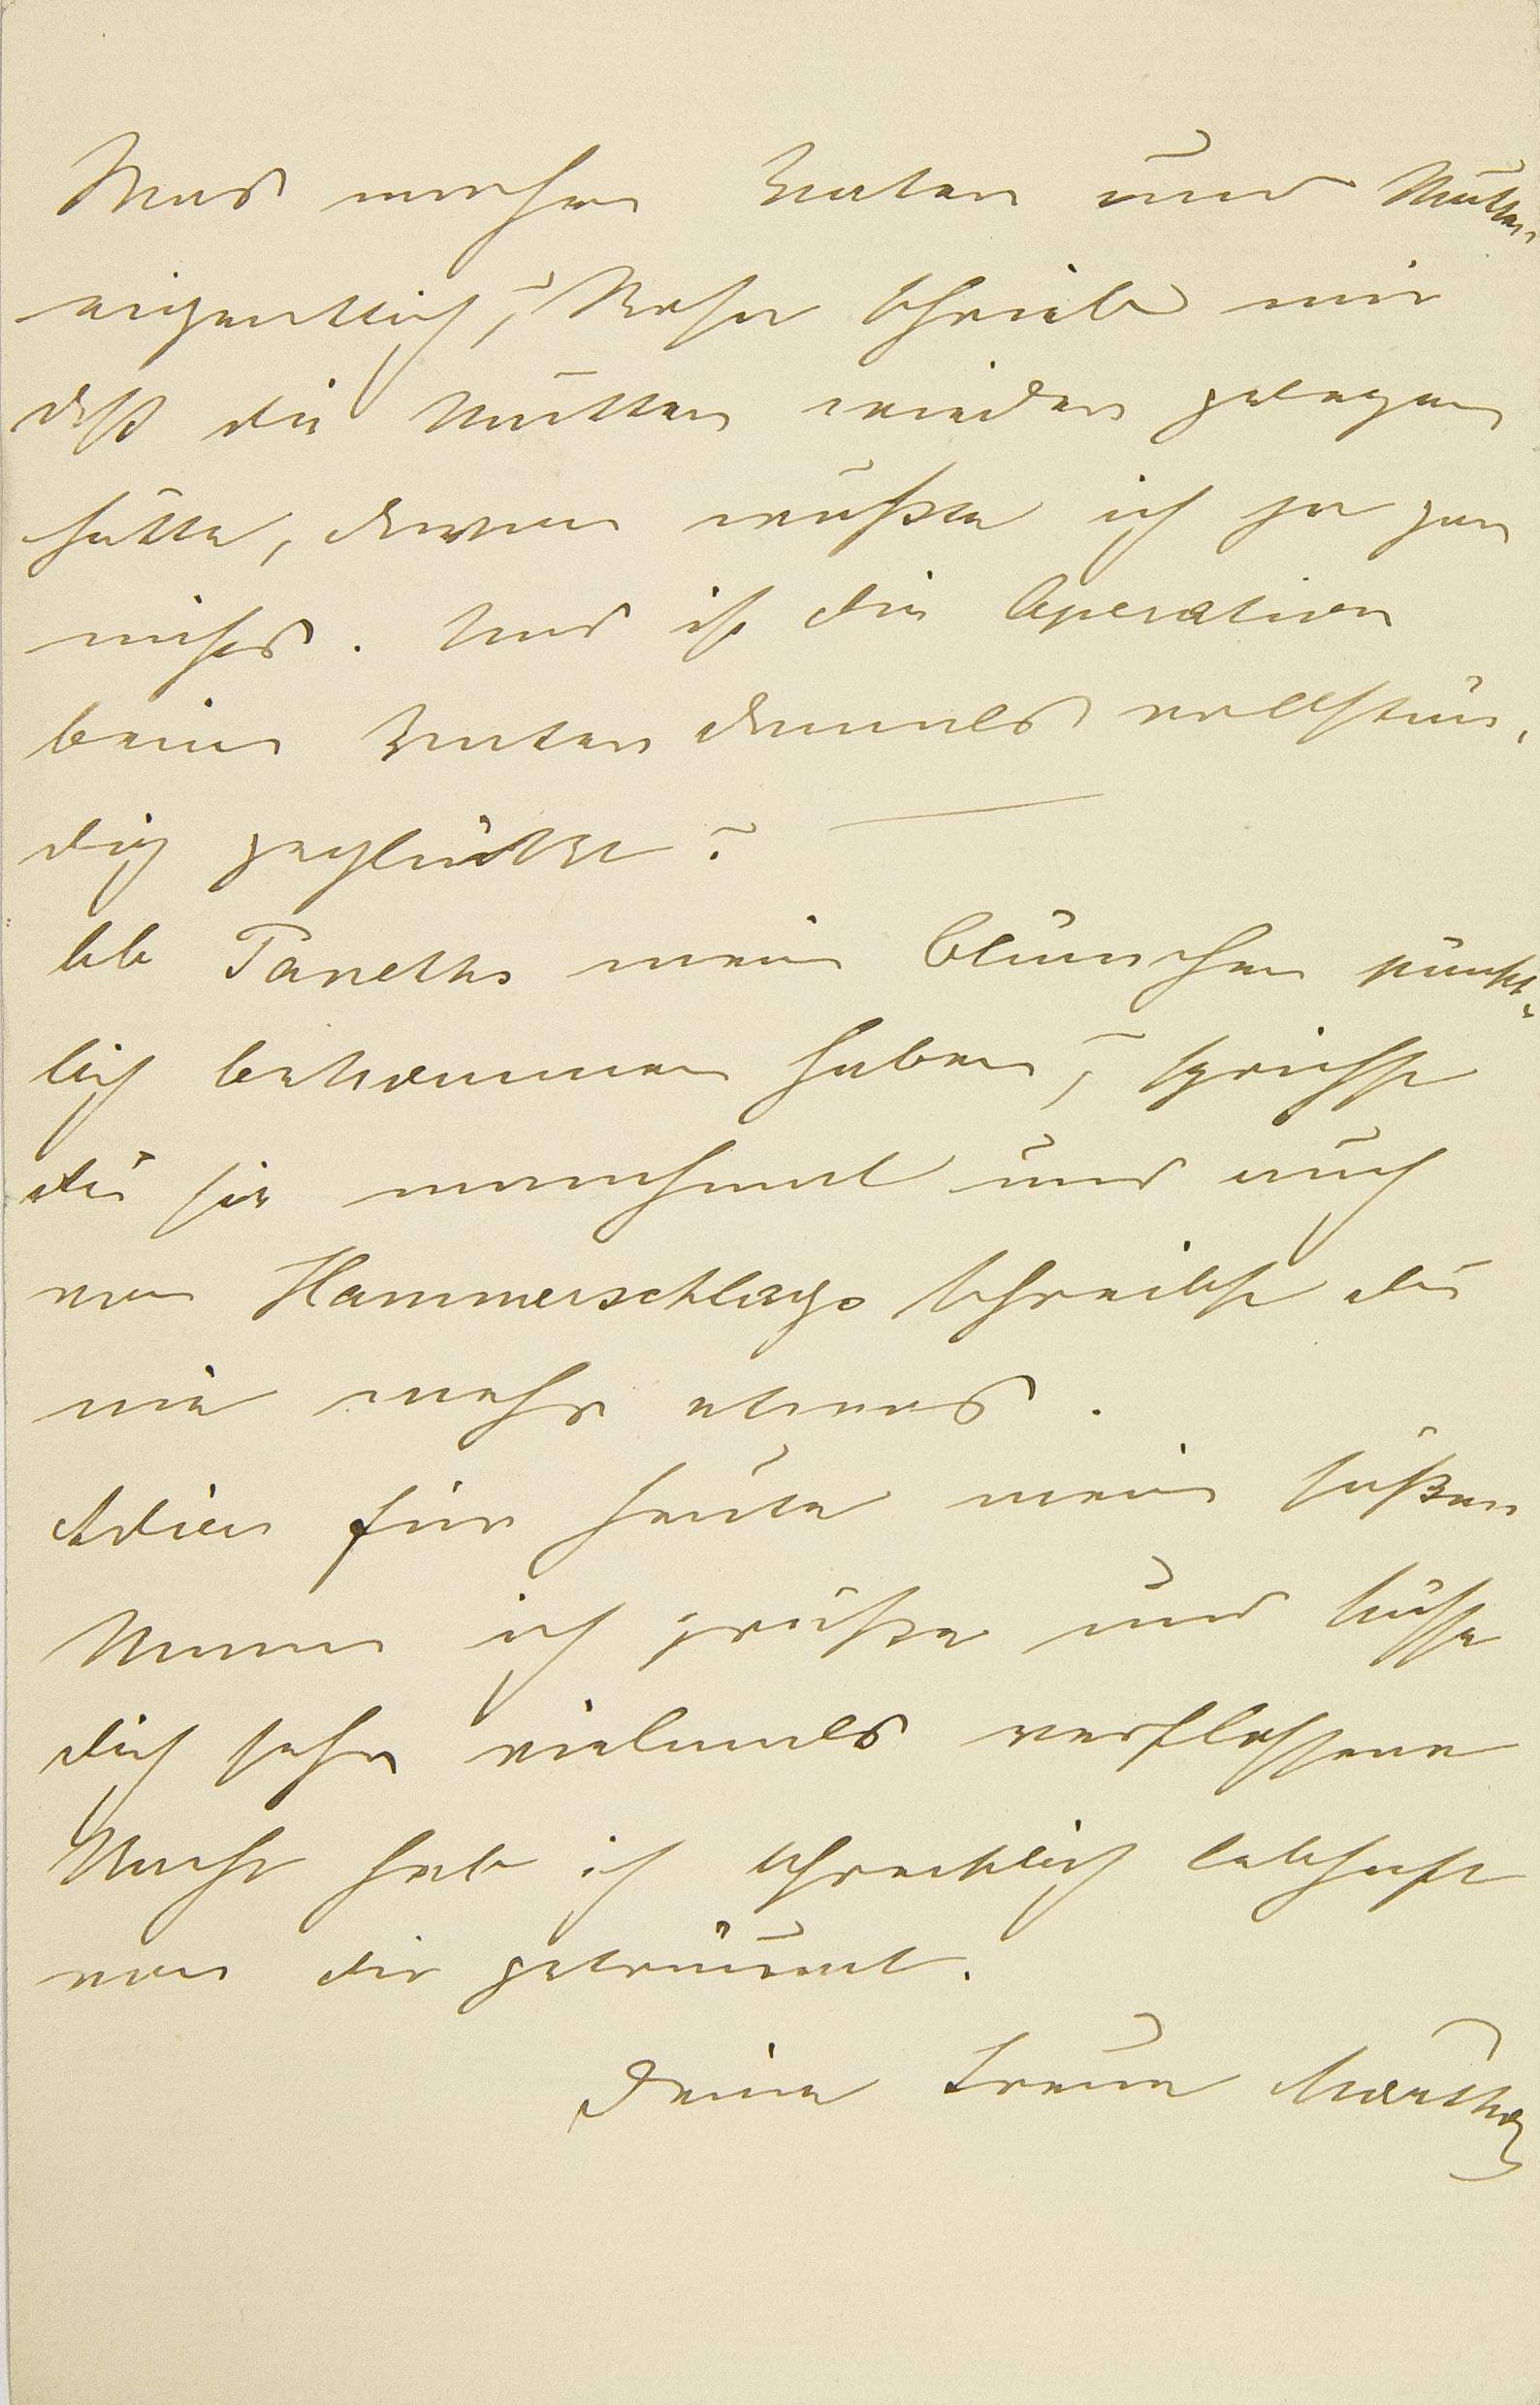 Was machen Vater und Mutter
eigentlich, Rosa schrieb mir
daß die Mutter wieder gelegen
hätte, davon wußte ich ja gar
nichts. Und ist die Operation
beim Vater damals vollstän-
dig geglückt?
Ob Paneths mein Blümchen pünkt-
lich bekommen haben, sprichst
du sie manchmal und auch
von Hammerschlags schreibst du
nie mehr etwas.
Adieu für heute mein süßer
Mann ich grüße und küsse
dich sehr vielmals verflossene
Nacht hab ich schrecklich lebhaft
von dir geträumt.
Deine treue Martha